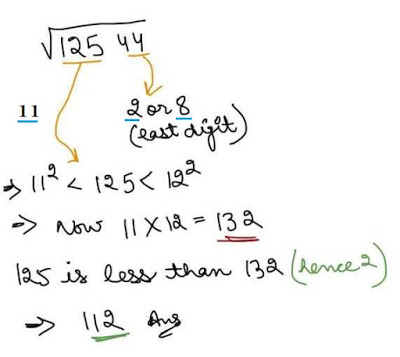 √125 44
11
2 or 8
(last digit)
⇒ 11² < 125 < 12²
→ Now 11 × 12 = 132
125 is less than 132 (hence 2)
⇒ 112 Ans